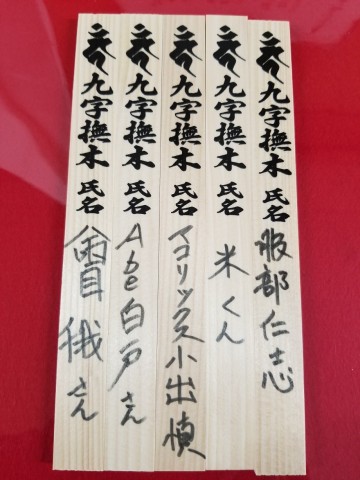 九字撫木 氏名 服部仁志
九字撫木 氏名 米くん
九字撫木 氏名 マコリックス小出慎
九字撫木 氏名 Abe白戸さん
九字撫木 氏名 さん